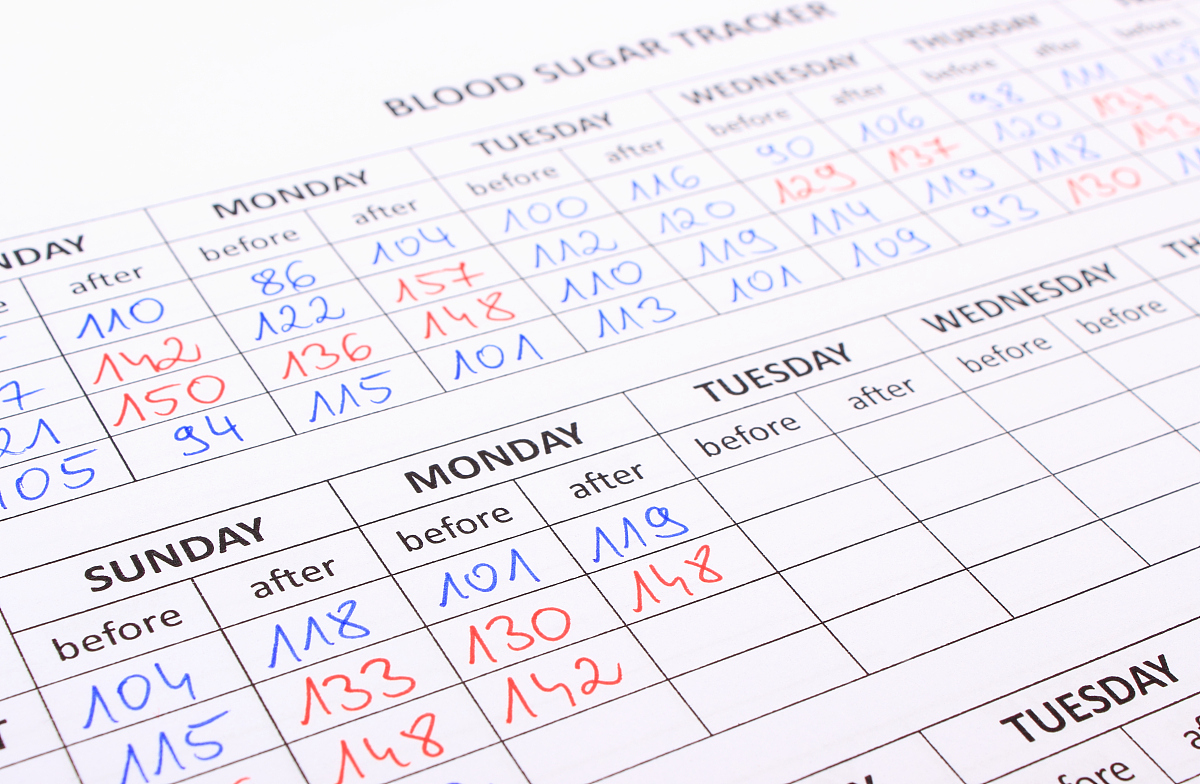 BLOOD SUGAR TRACKER
MONDAY TUESDAY WEDNESDAY THURSDAY
after before after before after before after before after before
110 86 104 100 116 90 106 98 111
142 122 157 112 120 129 137 120 134
150 136 148 110 119 114 119 118 143
105 94 115 101 113 101 109 93 130
SUNDAY MONDAY TUESDAY WEDNESDAY
before after before after before after before before
104 118 101 119
115 133 130 148
148 142
TUESDAY